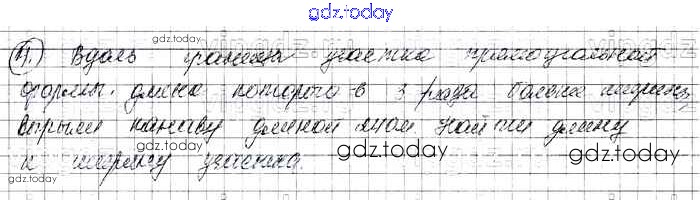 gdz.today
4.) Вдоль границы участка прямоугольной
формы, длина которого в 3 раза больше ширины,
вырыли канаву длиной 240м. Найти длину
и ширину участка.
gdz.today
gdz.today
gdz.today